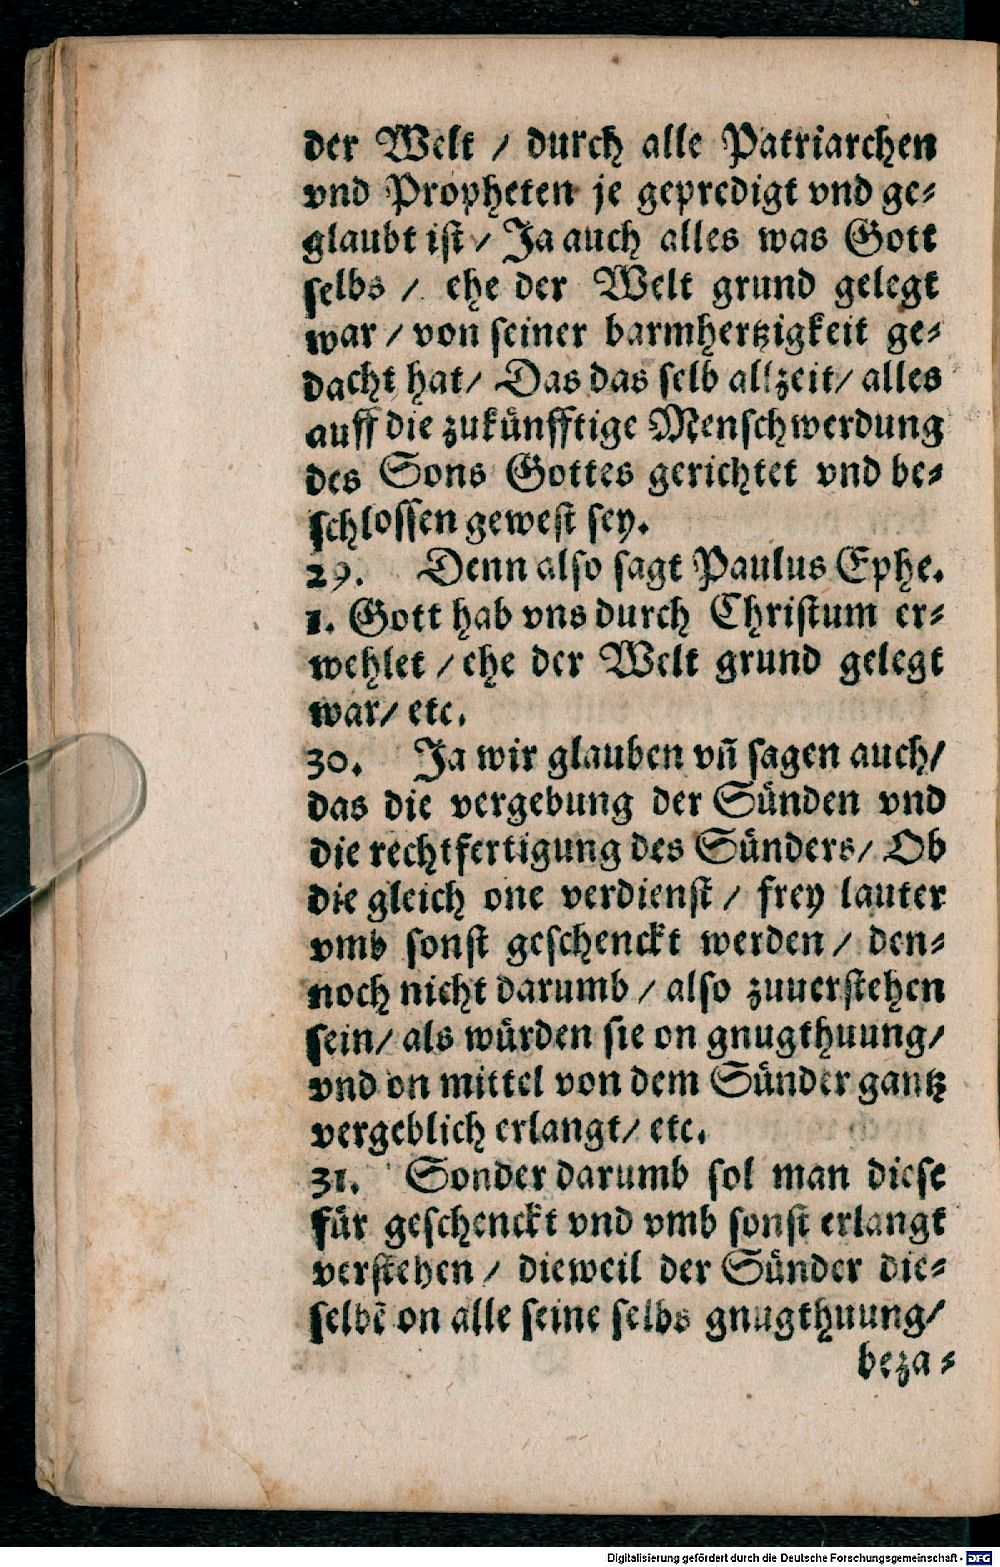 der Welt / durch alle Patriarchen
vnd Propheten je gepredigt vnd ge-
glaubt ist / Ja auch alles was Gott
selbs / ehe der Welt grund gelegt
war / von seiner barmhertzigkeit ge-
dacht hat / Das das selb allzeit / alles
auff die zukünfftige Menschwerdung
des Sons Gottes gerichtet vnd be-
schlossen gewest sey.
29. Denn also sagt Paulus Ephe.
1. Gott hab vns durch Christum er-
wehlet / ehe der Welt grund gelegt
war / etc.
30. Ja wir glauben vn̄ sagen auch /
das die vergebung der Sünden vnd
die rechtfertigung des Sünders / Ob
die gleich one verdienst / frey lauter
vmb sonst geschenckt werden / den-
noch nicht darumb / also zuuerstehen
sein / als würden sie on gnugthuung /
vnd on mittel von dem Sünder gantz
vergeblich erlangt / etc.
31. Sonder darumb sol man diese
für geschenckt vnd vmb sonst erlangt
verstehen / dieweil der Sünder die-
selbē on alle seine selbs gnugthuung /
beza-
Digitalisierung gefördert durch die Deutsche Forschungsgemeinschaft - DFG